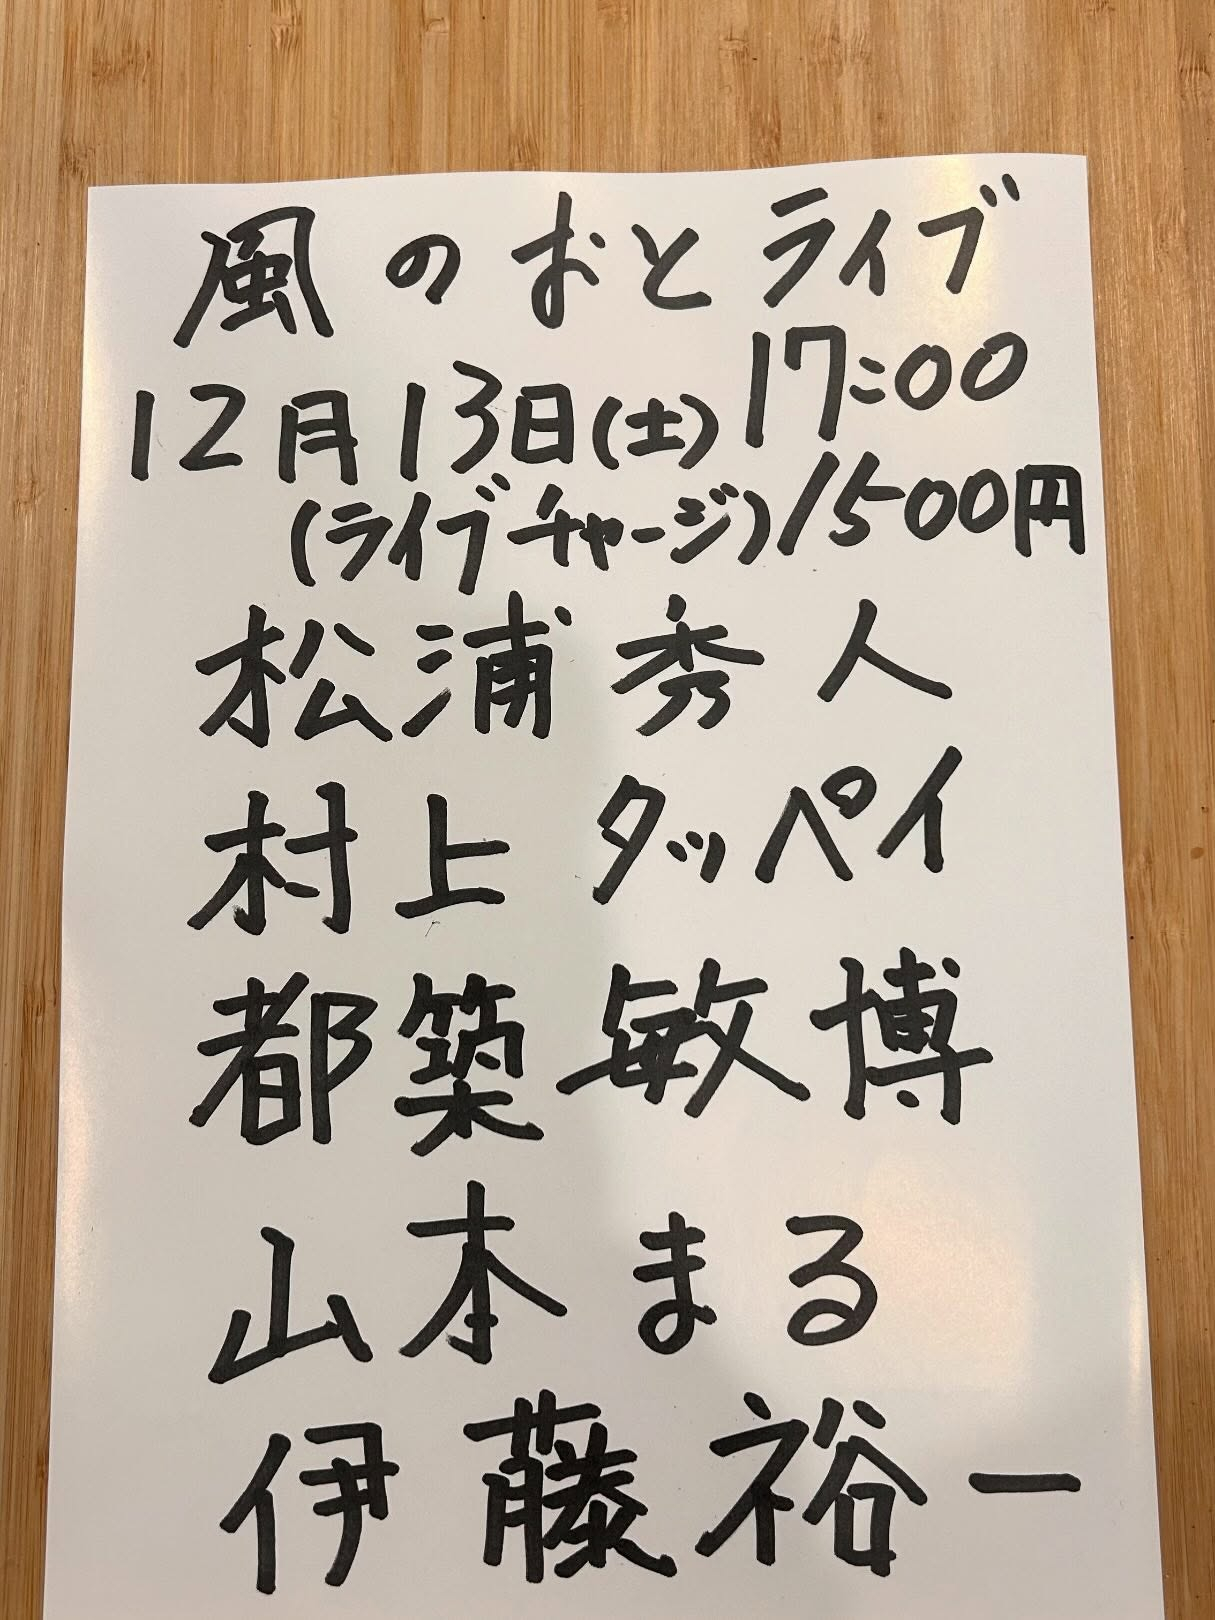 風のおとライブ
12月13日(土)17:00
(ライブチャージ)1500円
松浦秀人
村上タッペイ
都築敏博
山本まる
伊藤裕一